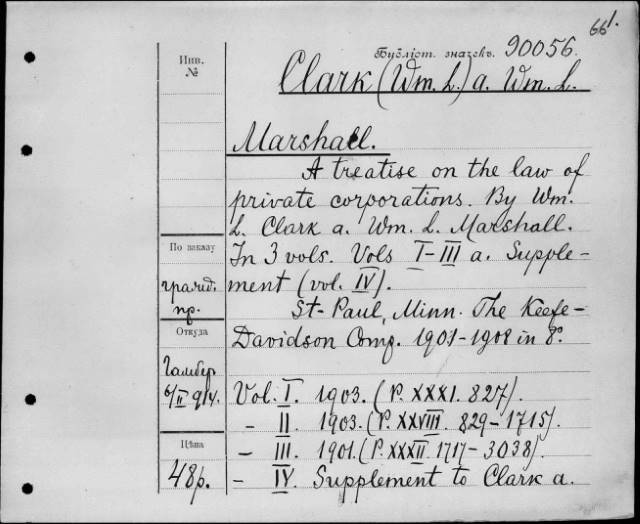 66/.
Бубліст. значекъ. 90056.
Clark (Wm. L.) a. Wm. L.
Marshall.
A treatise on the law of
private corporations. By Wm.
L. Clark a. Wm. L. Marshall.
In 3 vols. Vols I-III a. Supple-
ment (vol. IV).
St-Paul, Minn. The Keefe-
Davidson Comp. 1901-1908 in 8°.
Vol. I. 1903. (P. XXXI. 827).
- II. 1903. (P. XXVIII. 829-1715).
- III. 1901. (P. XXXII. 1717-3038).
- IV. Supplement to Clark a.
Инв.
№
По заказу
гражд.
пр.
Откуда
Гамбер
6/II 914.
Цѣна
48р.